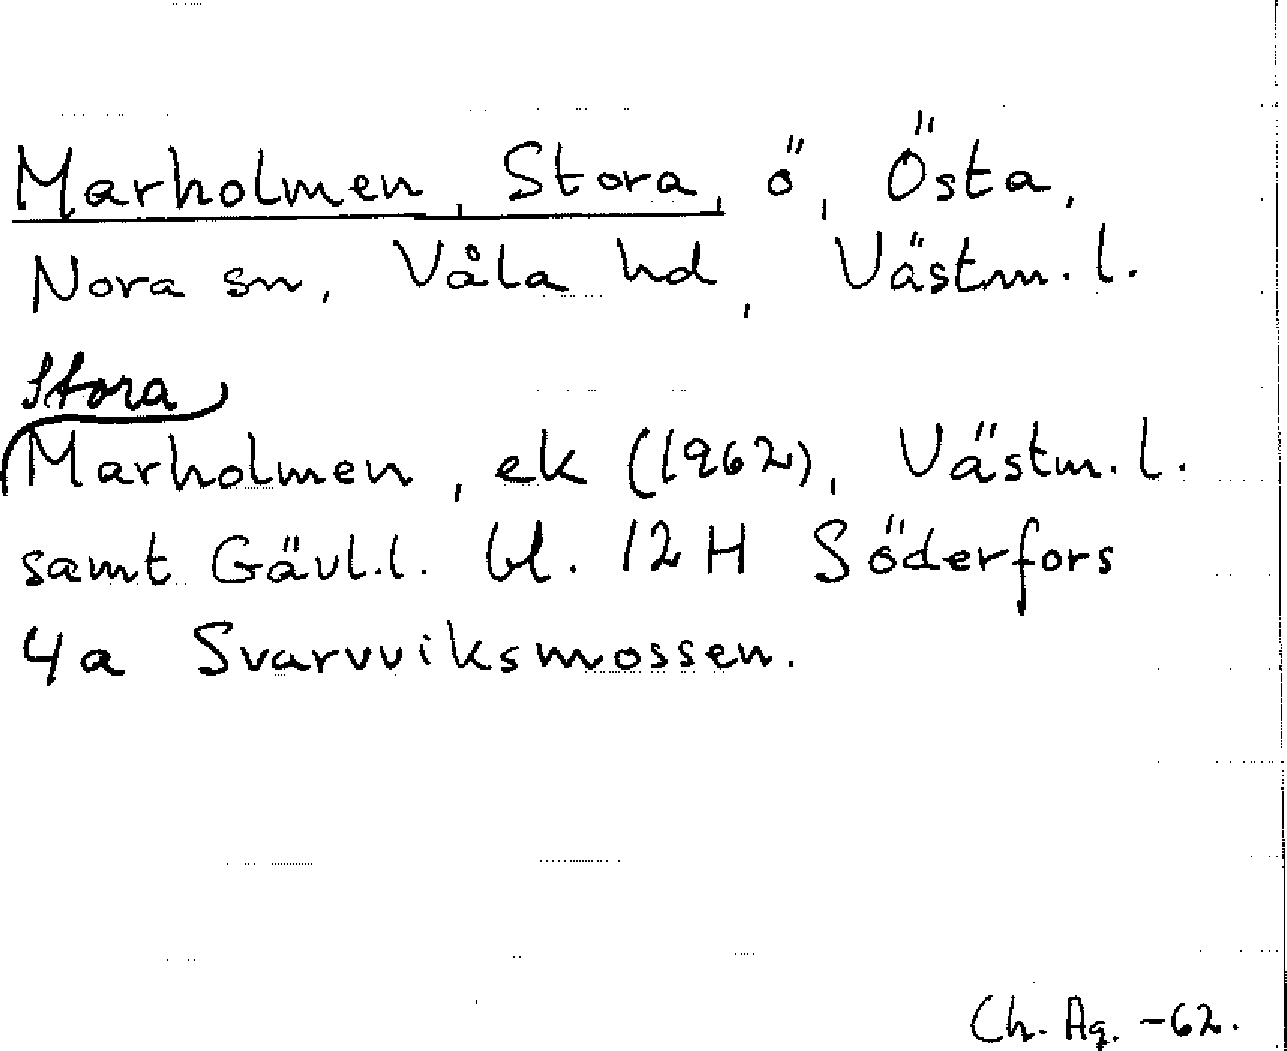 Marholmen, Stora, ö, Östa,
Nora sn, Våla hd, Västm. l.
Stora
Marholmen, ek (1962), Västm. l.
samt Gävl.l. bl. 12 H Söderfors
4a Svarvviksmossen.
Ch. Ag. -62.